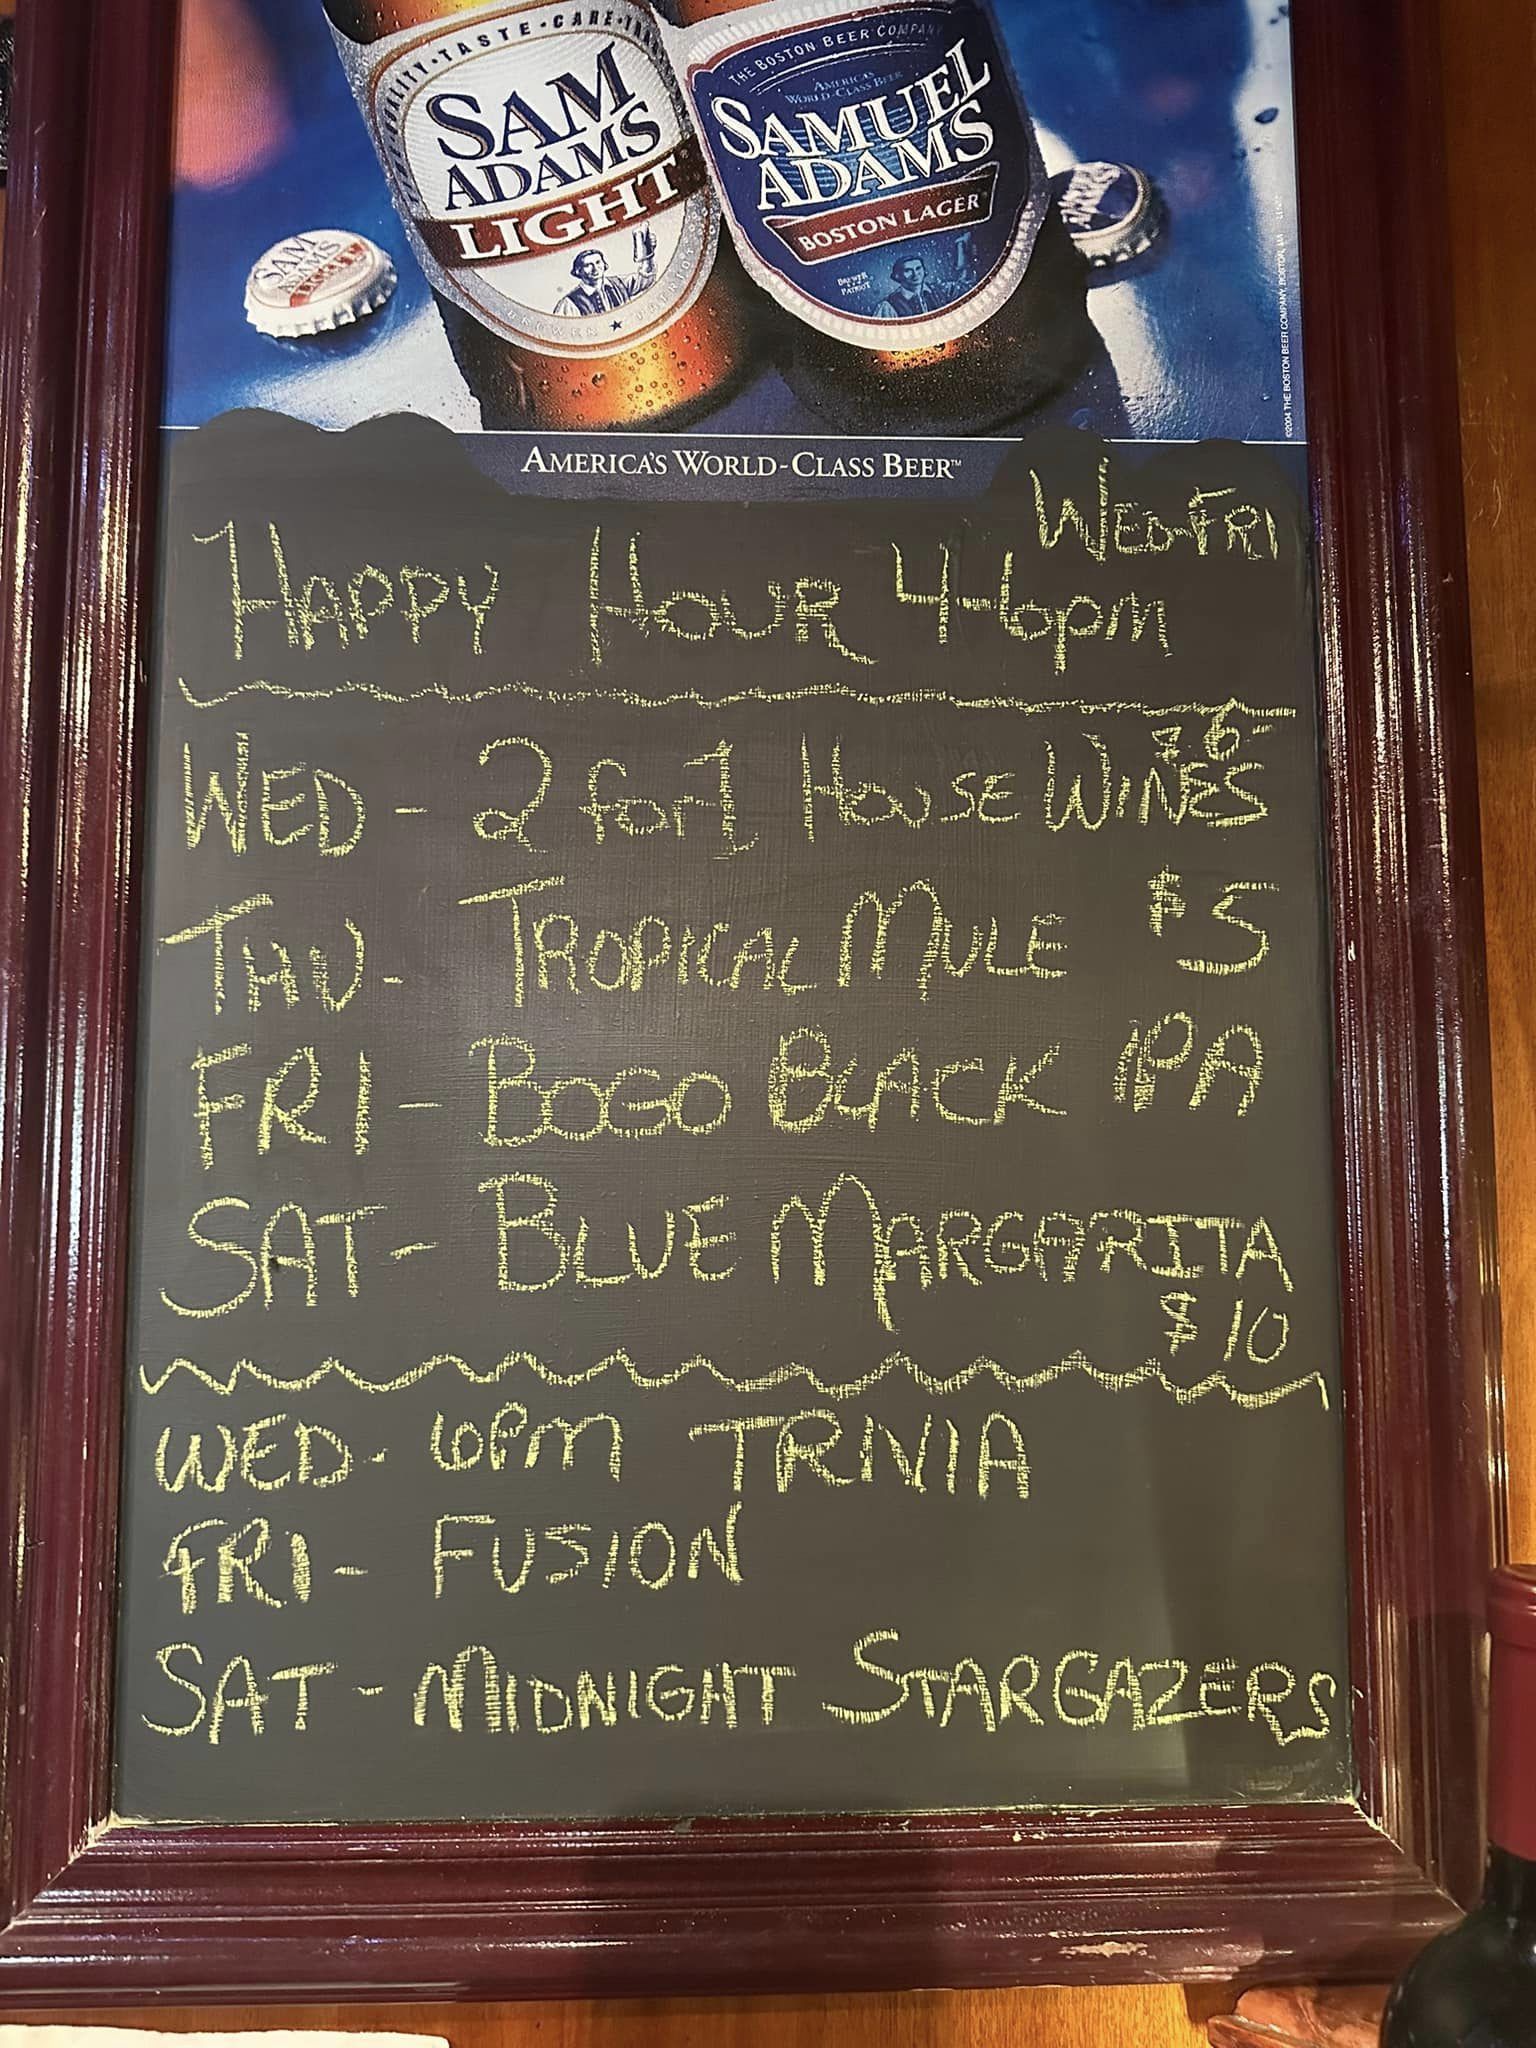 QUALITY · TASTE · CARE ·
SAM
ADAMS
LIGHT
THE BOSTON BEER COMPANY
AMERICA'S
WORLD-CLASS BEER
SAMUEL
ADAMS
BOSTON LAGER
BREWER
PATRIOT
SAM
ADAMS
LIGHT
©2004 THE BOSTON BEER COMPANY, BOSTON, MA
AMERICA'S WORLD-CLASS BEER™
WED-FRI
HAPPY HOUR 4-6pm
$6-
WED - 2 for 1 HOUSE WINES
THU - TROPICAL MULE $5
FRI - BOGO BLACK IPA
SAT - BLUE MARGARITA
$10
WED - 6PM TRIVIA
FRI - FUSION
SAT - MIDNIGHT STARGAZERS